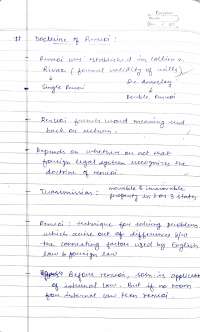 # Doctrine of Renvoi :
- Renvoi was established in Collier v.
Rivaz (formal validity of wills)
↓
Single Renvoi
Re Annesley
↓
Double Renvoi
- Renvoi french word meaning send
back or return.
- Depends on whether or not that
foreign legal system recognizes the
doctrine of renvoi.
- Transmission : movable & immovable
property in 2 or 3 states
- Renvoi : technique for solving problems
which arise out of differences b/w
the connecting factor used by English
law & foreign law
- Before renvoi, soln in application
of internal law. But if no room
for internal law then renvoi.